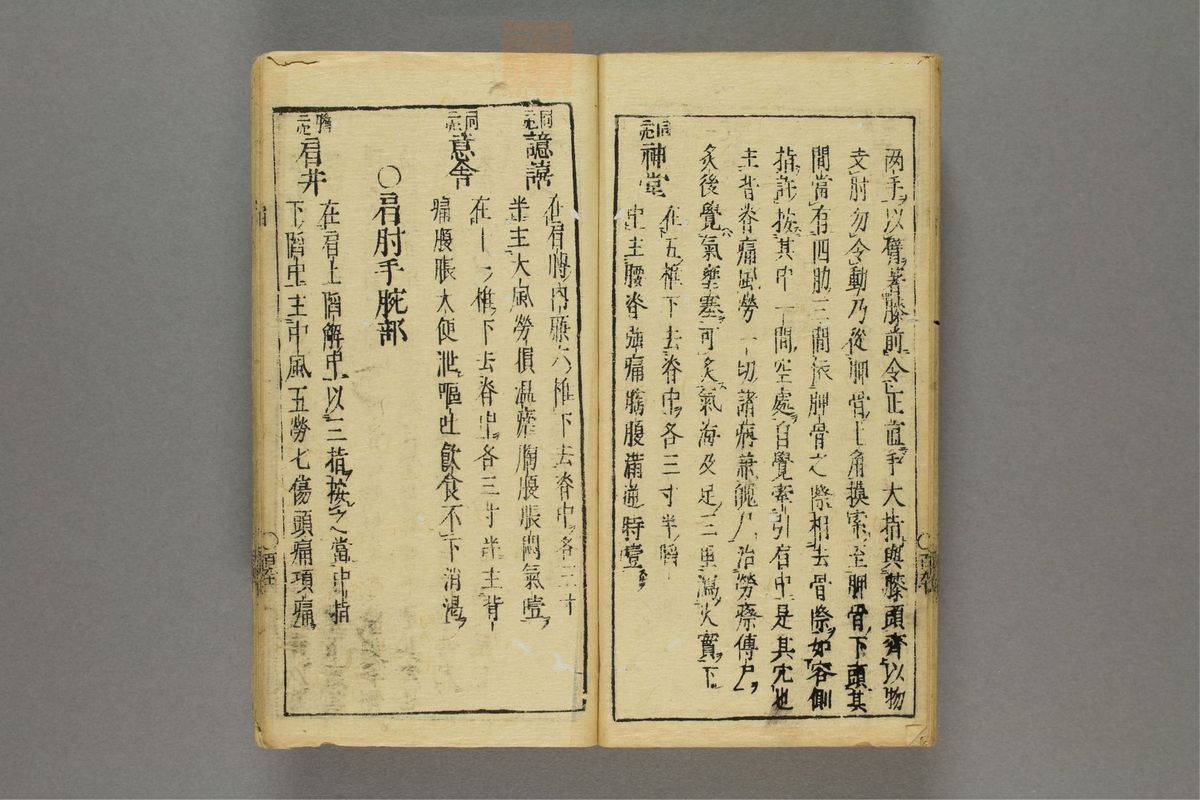 両手以臂著膝前令正直手大指與膝頭齊以物
支肘勿令動乃從胛骨上角摸索至胛骨下頭其
間當有四肋三間依胛骨之際相去骨際如容側
指許按其中一間空處自覺牽引肩中是其穴也
主背脊痛風勞一切諸病兼尸治勞瘵傳尸
炙後覺氣壅塞可炙氣海及足三里瀉火實下
同元 神堂
在五椎下去脊中各三寸半陷
中主腰脊強痛腹滿逆特噎
同元 譩譆
在肩膊內廉六椎下去脊中各三寸
半主大風勞損温瘧胸腹脹悶氣噎
同元 意舍
在十一椎下去脊中各三寸半主背
痛腹脹大便泄嘔吐飲食不下消渴
〇肩肘手腕部
膽元 肩井
在肩上陷解中以三指按之當中指
下陷中主中風五勞七傷頭痛項痛